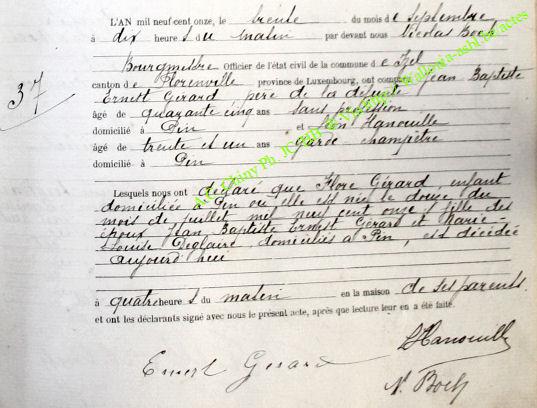 L'AN mil neuf cent onze, le trente du mois de Septembre
à dix heures du matin par devant nous Nicolas Boch
Bourgmestre Officier de l'état civil de la commune de Izel
canton de Florenville province de Luxembourg, ont comparu Jean Baptiste
Ernest Gérard père de la défunte
âgé de quarante cinq ans sans profession
37
domicilié à Pin et Léon Hanouille
âgé de trente et un ans garde champêtre
domicilié à Pin
Lesquels nous ont déclaré que Flore Gérard, enfant
domiciliée à Pin où elle est née le douze du
mois de juillet mil neuf cent onze, fille des
époux Jean Baptiste Ernest Gérard et Marie-
Louise Deglaire domiciliés à Pin, est décédée
aujourd'hui
à quatre heures du matin en la maison de ses parents.
et ont les déclarants signé avec nous le présent acte, après que lecture leur en a été faite.
LHanouille
Ernest Gerard
N. Boch